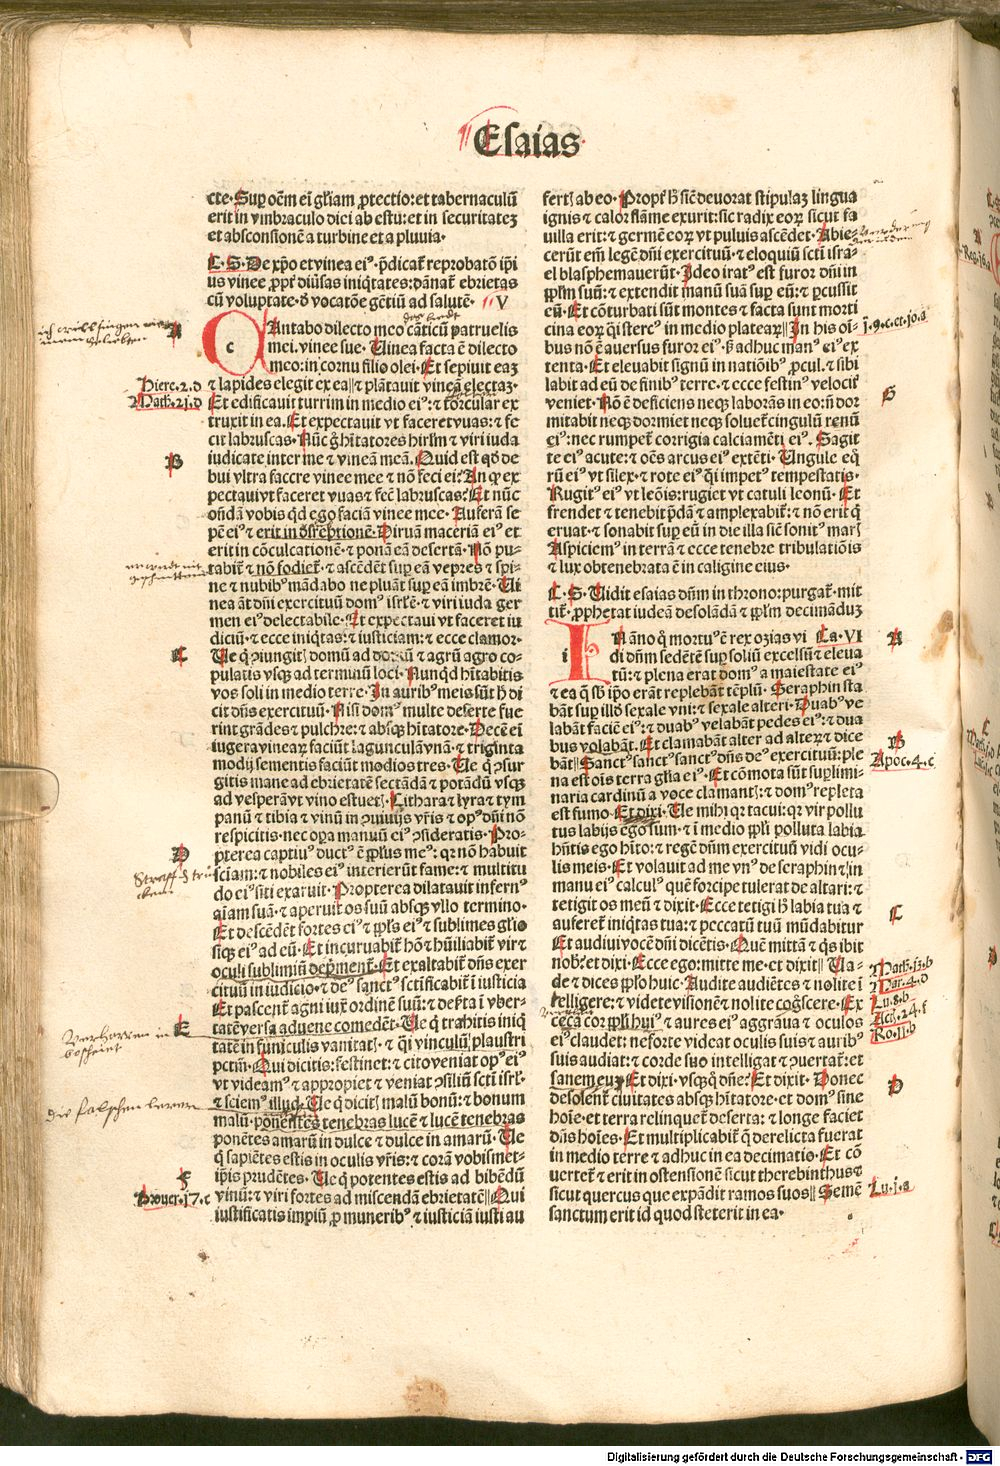 Esaias
cte. Sup oēm eī gl̄iam ꝓtectio: et tabernaculū
erit in vmbraculo diei ab estu: et in securitateꝫ
et absconsionē a turbine et a pluuia.
C. S. De xp̄o et vinea ei⁹. p̄dicat̄ reprobatō ip̄i
us vinee ꝓpt̄ diūsas iniq̄tates: dānat̄ ebrietas
cū voluptate. d̄ vocatōe gētiū ad salutē. V
Antabo dilecto meo cāticū patruelis
c mei. vinee sue. Uinea facta ē dilecto
meo: in cornu filio olei. Et sepiuit eaꝫ
⁊ lapides elegit ex ea ⁊ plātauit vineā electaꝫ.
Et edificauit turrim in medio ei⁹: ⁊ torcular ex
truxit in ea. Et expectauit vt faceret vuas: ⁊ fe
cit labruscas. Nūc g̊ hītatores hirlm̄ ⁊ viri iuda
iudicate inter me ⁊ vineā meā. Quid est qd̄ de
bui vltra facere vinee mee ⁊ nō feci ei? An ꝙ ex
pectaui vt faceret vuas ⁊ fec̄ labruscas? Et nūc
ōn̄dā vobis qd̄ ego faciā vinee mee. Auferā se
pē ei⁹ ⁊ erit in dir̄eptionē. Diruā maceriā ei⁹ et
erit in cōculcationē. ⁊ ponā eā desertā. Nō pu-
tabit̄ ⁊ nō fodiet̄. ⁊ ascēdēt sup eā vepres ⁊ spi-
ne ⁊ nubib⁹ mādabo ne pluāt sup eā imbrē. Ui
nea āt dn̄i exercituū dom⁹ isrl̄ē. ⁊ viri iuda ger
men ei⁹ delectabile. Et expectaui vt faceret iu
diciū. ⁊ ecce iniq̄tas: ⁊ iusticiam: ⁊ ecce clamor.
Ue q̄ ꝯiungit̄ domū ad domū ⁊ agrū agro co-
pulatis vsqꝫ ad termnū loci. Nunqd̄ hītabitis
vos soli in medio terre. In aurib⁹ meis sūt h̄ di
cit dn̄s exercituū. Nisi dom⁹ multe deserte fue
rint grādes ⁊ pulchre: ⁊ absqꝫ hītatore. Decē eī
iugera vinearꝝ faciūt lagunculā vnā. ⁊ triginta
modij sementis faciūt modios tres. Ue q̄ ꝯsur
gitis mane ad ebrietatē sectādā ⁊ potādū vsqꝫ
ad vesperā vt vino estuet̄. Cithara ⁊ lyra ⁊ tym
panū ⁊ tibia ⁊ vinū in ꝯuiuijs vr̄is ⁊ op⁹ dn̄i nō
respicitis. nec oꝑa manuū ei⁹ ꝯsideratis. Pro-
pterea captiu⁹ duct⁹ ē ppl̄us me⁹: qꝛ nō habuit
sciam: ⁊ nobiles ei⁹ interierūt fame: ⁊ multitu
do ei⁹ siti exaruit. Propterea dilatauit infern⁹
aīam suā. ⁊ aperuit os suū absqꝫ vllo termino.
Et descēdēt fortes ei⁹ ⁊ ppl̄s ei⁹ ⁊ sublimes gl̄io
siqꝫ ei⁹ ad eū. Et incuruabit̄ hō ⁊ hūiliabit̄ vir ⁊
oculi sublimiū dep̄ment̄. Et exaltabit̄ dn̄s exer
cituū in iudicio. ⁊ de⁹ sanct⁹ sctificabit̄ ī iusticia
Et pascent̄ agni iux̄ ordinē suū: ⁊ deserta ī vber-
tatē versa aduene comedēt. Ue q̄ trahitis iniq̄
tatē in funiculis vanitat̄. ⁊ q̄i vinculū plaustri
pctm̄. Qui dicitis: festinet: ⁊ cito veniat op⁹ ei⁹
vt videam⁹ ⁊ appropiet ⁊ veniat ꝯsiliū scti isrl̄.
⁊ sciem⁹ illud. Ue q̄ dicit̄ malū bonū: ⁊ bonum
malū. ponentes tenebras lucē ⁊ lucē tenebras
ponētes amarū in dulce ⁊ dulce in amarū. Ue
q̄ sapiētes estis in oculis vr̄is: ⁊ corā vobismet-
ip̄is prudētes. Ue q̄ potentes estis ad bibēdū
vinū: ⁊ viri fortes ad miscendā ebrietatē Qui
iustificatis impiū ꝓ munerib⁹ ⁊ iusticiā iusti au
fert̄ ab eo. Propt̄ h̄ sic̄ deuorat stipulaꝫ lingua
ignis ⁊ calor flāme exurit: sic radix eorꝝ sicut fa
uilla erit: ⁊ germē eorꝝ vt puluis ascēdet. Abie-
cerūt em̄ legē dn̄i exercituū: ⁊ eloquiū scti isra-
el blasphemauerūt. Ideo irat⁹ est furor dn̄i in
ppl̄m suū: ⁊ extendit manū suā sup eū: ⁊ ꝑcussit
eū. Et cōturbati sūt montes ⁊ facta sunt morti
cina eorꝝ q̄i sterc⁹ in medio platearꝝ In his oī-
bus nō ē auersus furor ei⁹. sꝫ adhuc man⁹ ei⁹ ex
tenta. Et eleuabit signū in natiōib⁹ ꝓcul. ⁊ sibi
labit ad eū de finib⁹ terre. ⁊ ecce festin⁹ velocit̄
veniet. Nō ē deficiens neqꝫ laborās in eo: nō dor
mitabit neqꝫ dormiet neqꝫ soluet̄ cingulū renū
ei⁹: nec rumpet̄ corrigia calciamēti ei⁹. Sagit
te ei⁹ acute: ⁊ oēs arcus ei⁹ extēti. Ungule eq̄
rū ei⁹ vt silex. ⁊ rote ei⁹ q̄i impet⁹ tempestatis.
Rugit⁹ ei⁹ vt leōis: rugiet vt catuli leonū. Et
frendet ⁊ tenebit p̄dā ⁊ amplexabit̄: ⁊ nō erit q̄
eruat. ⁊ sonabit sup eū in die illa sic̄ sonit⁹ mar̄
Aspiciem⁹ in terrā ⁊ ecce tenebre tribulatiōis
⁊ lux obtenebrata ē in caligine eius.
C. S. Uidit esaias dn̄m in throno: purgat̄. mit
tit̄. ꝓphetat iudeā desolādā ⁊ ppl̄m decimāduꝫ
N āno q̄ mortu⁹ ē rex ozias vi Ca. VI
i di dn̄m sedētē sup soliū excelsū ⁊ eleua
tū: ⁊ plena erat dom⁹ a maiestate ei⁹
⁊ ea q̄ sb̄ ip̄o erāt replebāt tēplū. Seraphin sta
bāt sup illd̄ sexale vni: ⁊ sexale alteri. Duab⁹ ve
labāt faciē ei⁹: ⁊ duab⁹ velabāt pedes ei⁹: ⁊ dua
bus volabāt. Et clamabāt alter ad alterꝝ ⁊ dice
bāt Sanct⁹ sanct⁹ sanct⁹ dn̄s de⁹ exercituū: ple
na est ois terra gl̄ia ei⁹. Et cōmota sūt suplimi-
naria cardinū a voce clamant̄: ⁊ dom⁹ repleta
est fumo. Et dixi. Ue mihi qꝛ tacui: qꝛ vir pollu
tus labijs ego sum. ⁊ ī medio ppl̄i polluta labia
hn̄tis ego hīto: ⁊ regē dn̄m exercituū vidi ocu-
lis meis. Et volauit ad me vn⁹ de seraphin ⁊ in
manu ei⁹ calcul⁹ quē forcipe tulerat de altari: ⁊
tetigit os meū ⁊ dixit. Ecce tetigi h̄ labia tua ⁊
auferet̄ iniq̄tas tua: ⁊ peccatū tuū mūdabitur
Et audiui vocē dn̄i dicētis. Quē mittā ⁊ qs̄ ibit
nob̄: et dixi. Ecce ego: mitte me. et dixit Ua-
de ⁊ dices ppl̄o huic. Audite audiētes ⁊ nolite ī
telligere: ⁊ videte visionē ⁊ nolite cog̊scere. Ex
ceca cor ppl̄i hui⁹ ⁊ aures ei⁹ aggraua ⁊ oculos
ei⁹ claude: ne forte videat oculis suis ⁊ aurib⁹
suis audiat: ⁊ corde suo intelligat ⁊ ꝯuertat̄: et
sanem euꝫ Et dixi. vsqꝫ q̄ dn̄e? Et dixit. Donec
desolent̄ ciuitates absqꝫ hītatore. et dom⁹ sine
hoīe. et terra relinquet̄ deserta: ⁊ longe faciet
dn̄s hoīes. Et multiplicabit̄ q̄ derelicta fuerat
in medio terre ⁊ adhuc in ea decimatio. Et cō
uertet̄ ⁊ erit in ostensionē sicut therebinthus ⁊
sicut quercus que expādit ramos suos Semē
sanctum erit id quod steterit in ea.
A
Hiere. 2. d
Math. 21. d
B
C
D
E
F
Prouer. 17. c
j. 9. c. et. 10. a
G
A
B
Apoc. 4. c
C
Math. 13. b
Mar. 4. b
Lu. 8. b
Act. 24. f
Ro. 11. b
D
Lu. j. a
die falschen leren
Digitalisierung gefördert durch die Deutsche Forschungsgemeinschaft - DFG